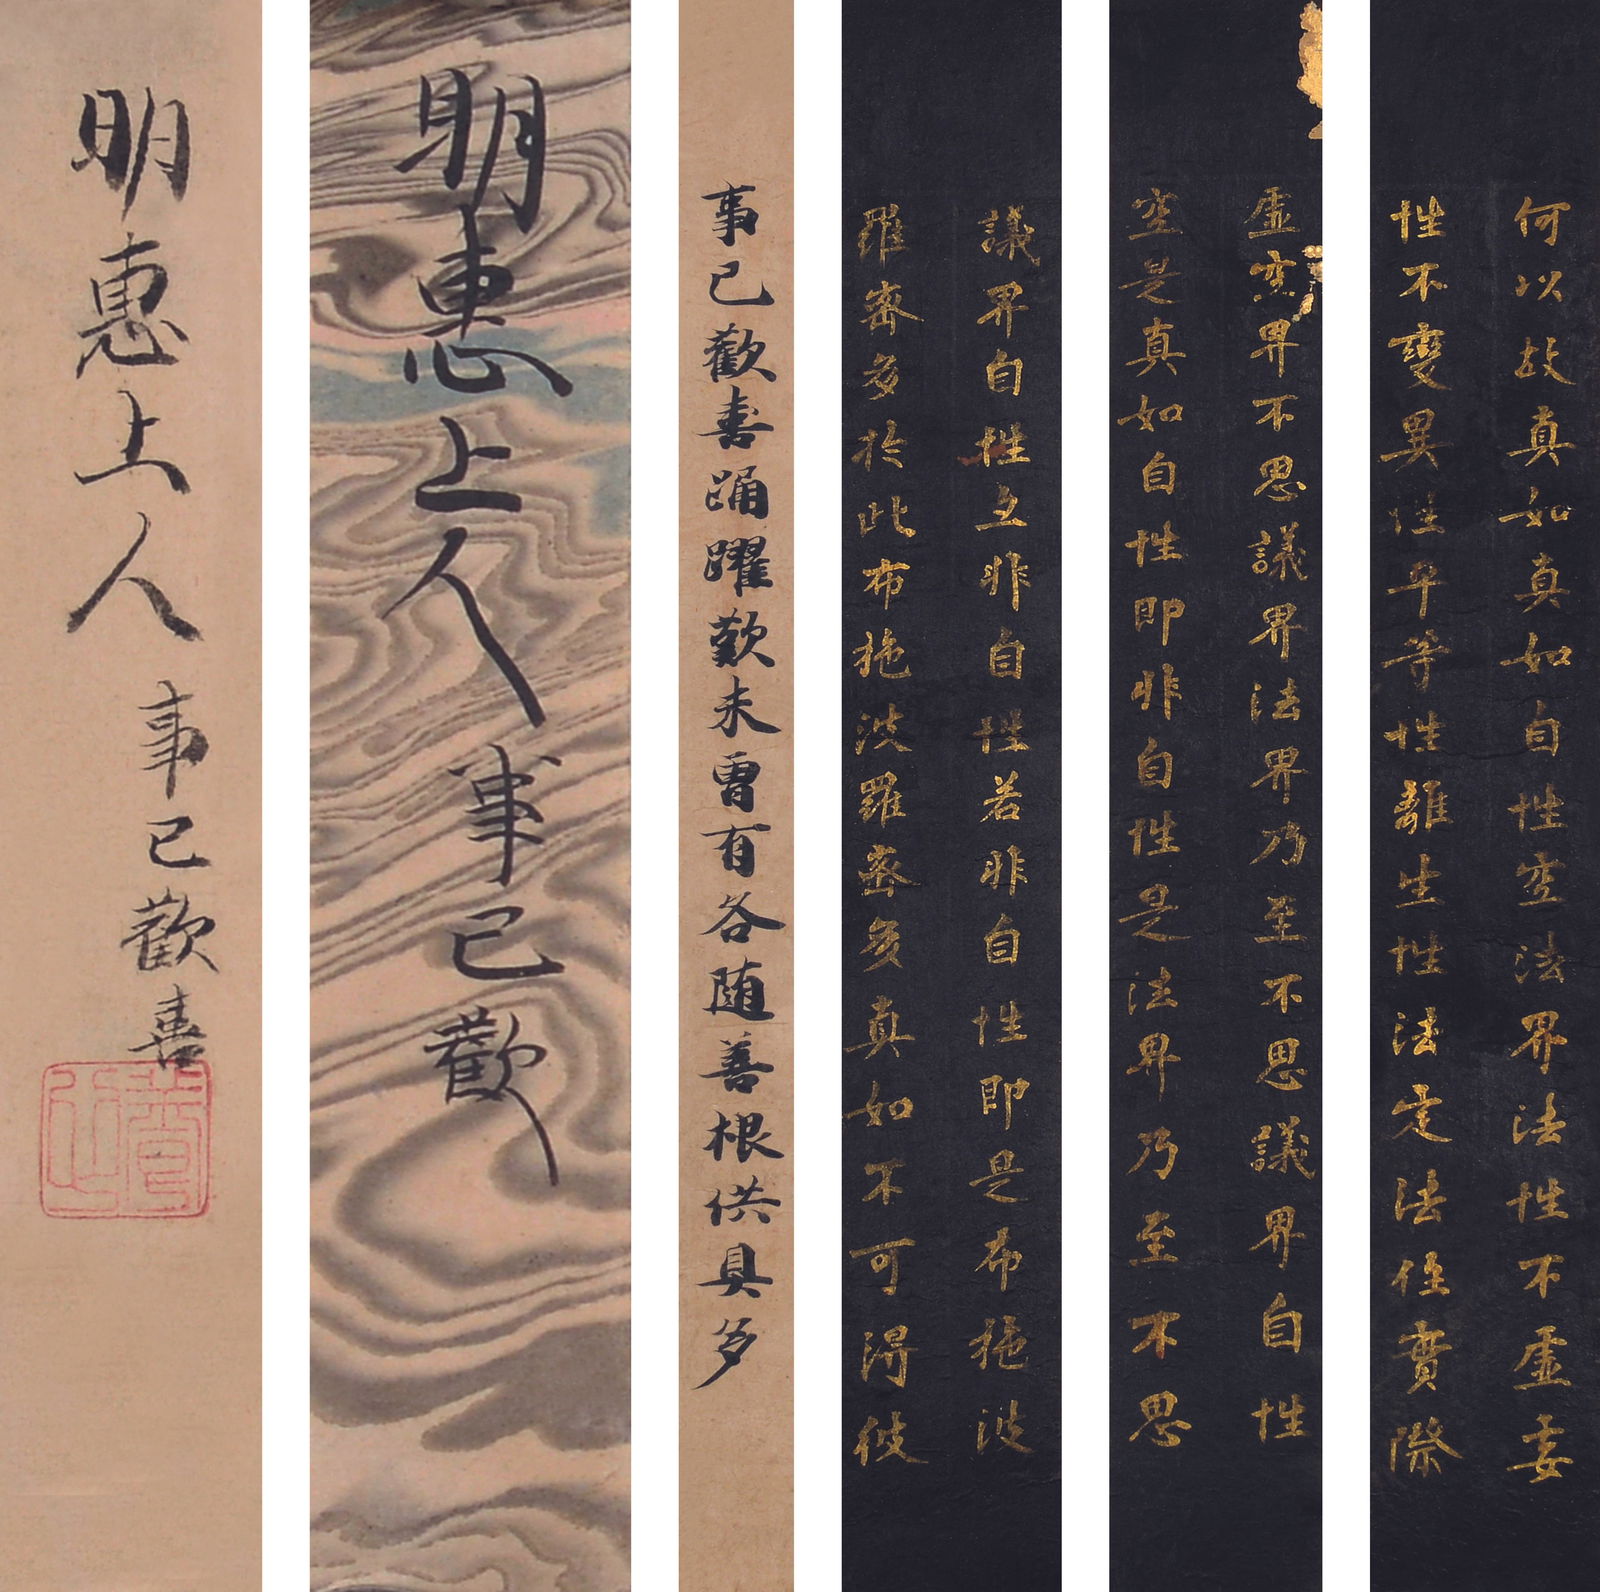 何以故真如真如自性空法界法性不虛妄
性不變異性平等性離生性法定法住實際
虛空界不思議界法界乃至不思議界自性
空是真如自性即非自性是法界乃至不思
議界自性亦非自性若非自性即是布施波
羅蜜多於此布施波羅蜜多真如不可得彼
事已歡喜踊躍歎未曾有各随善根供具多
明惠上人事已歡
明惠上人事已歡喜